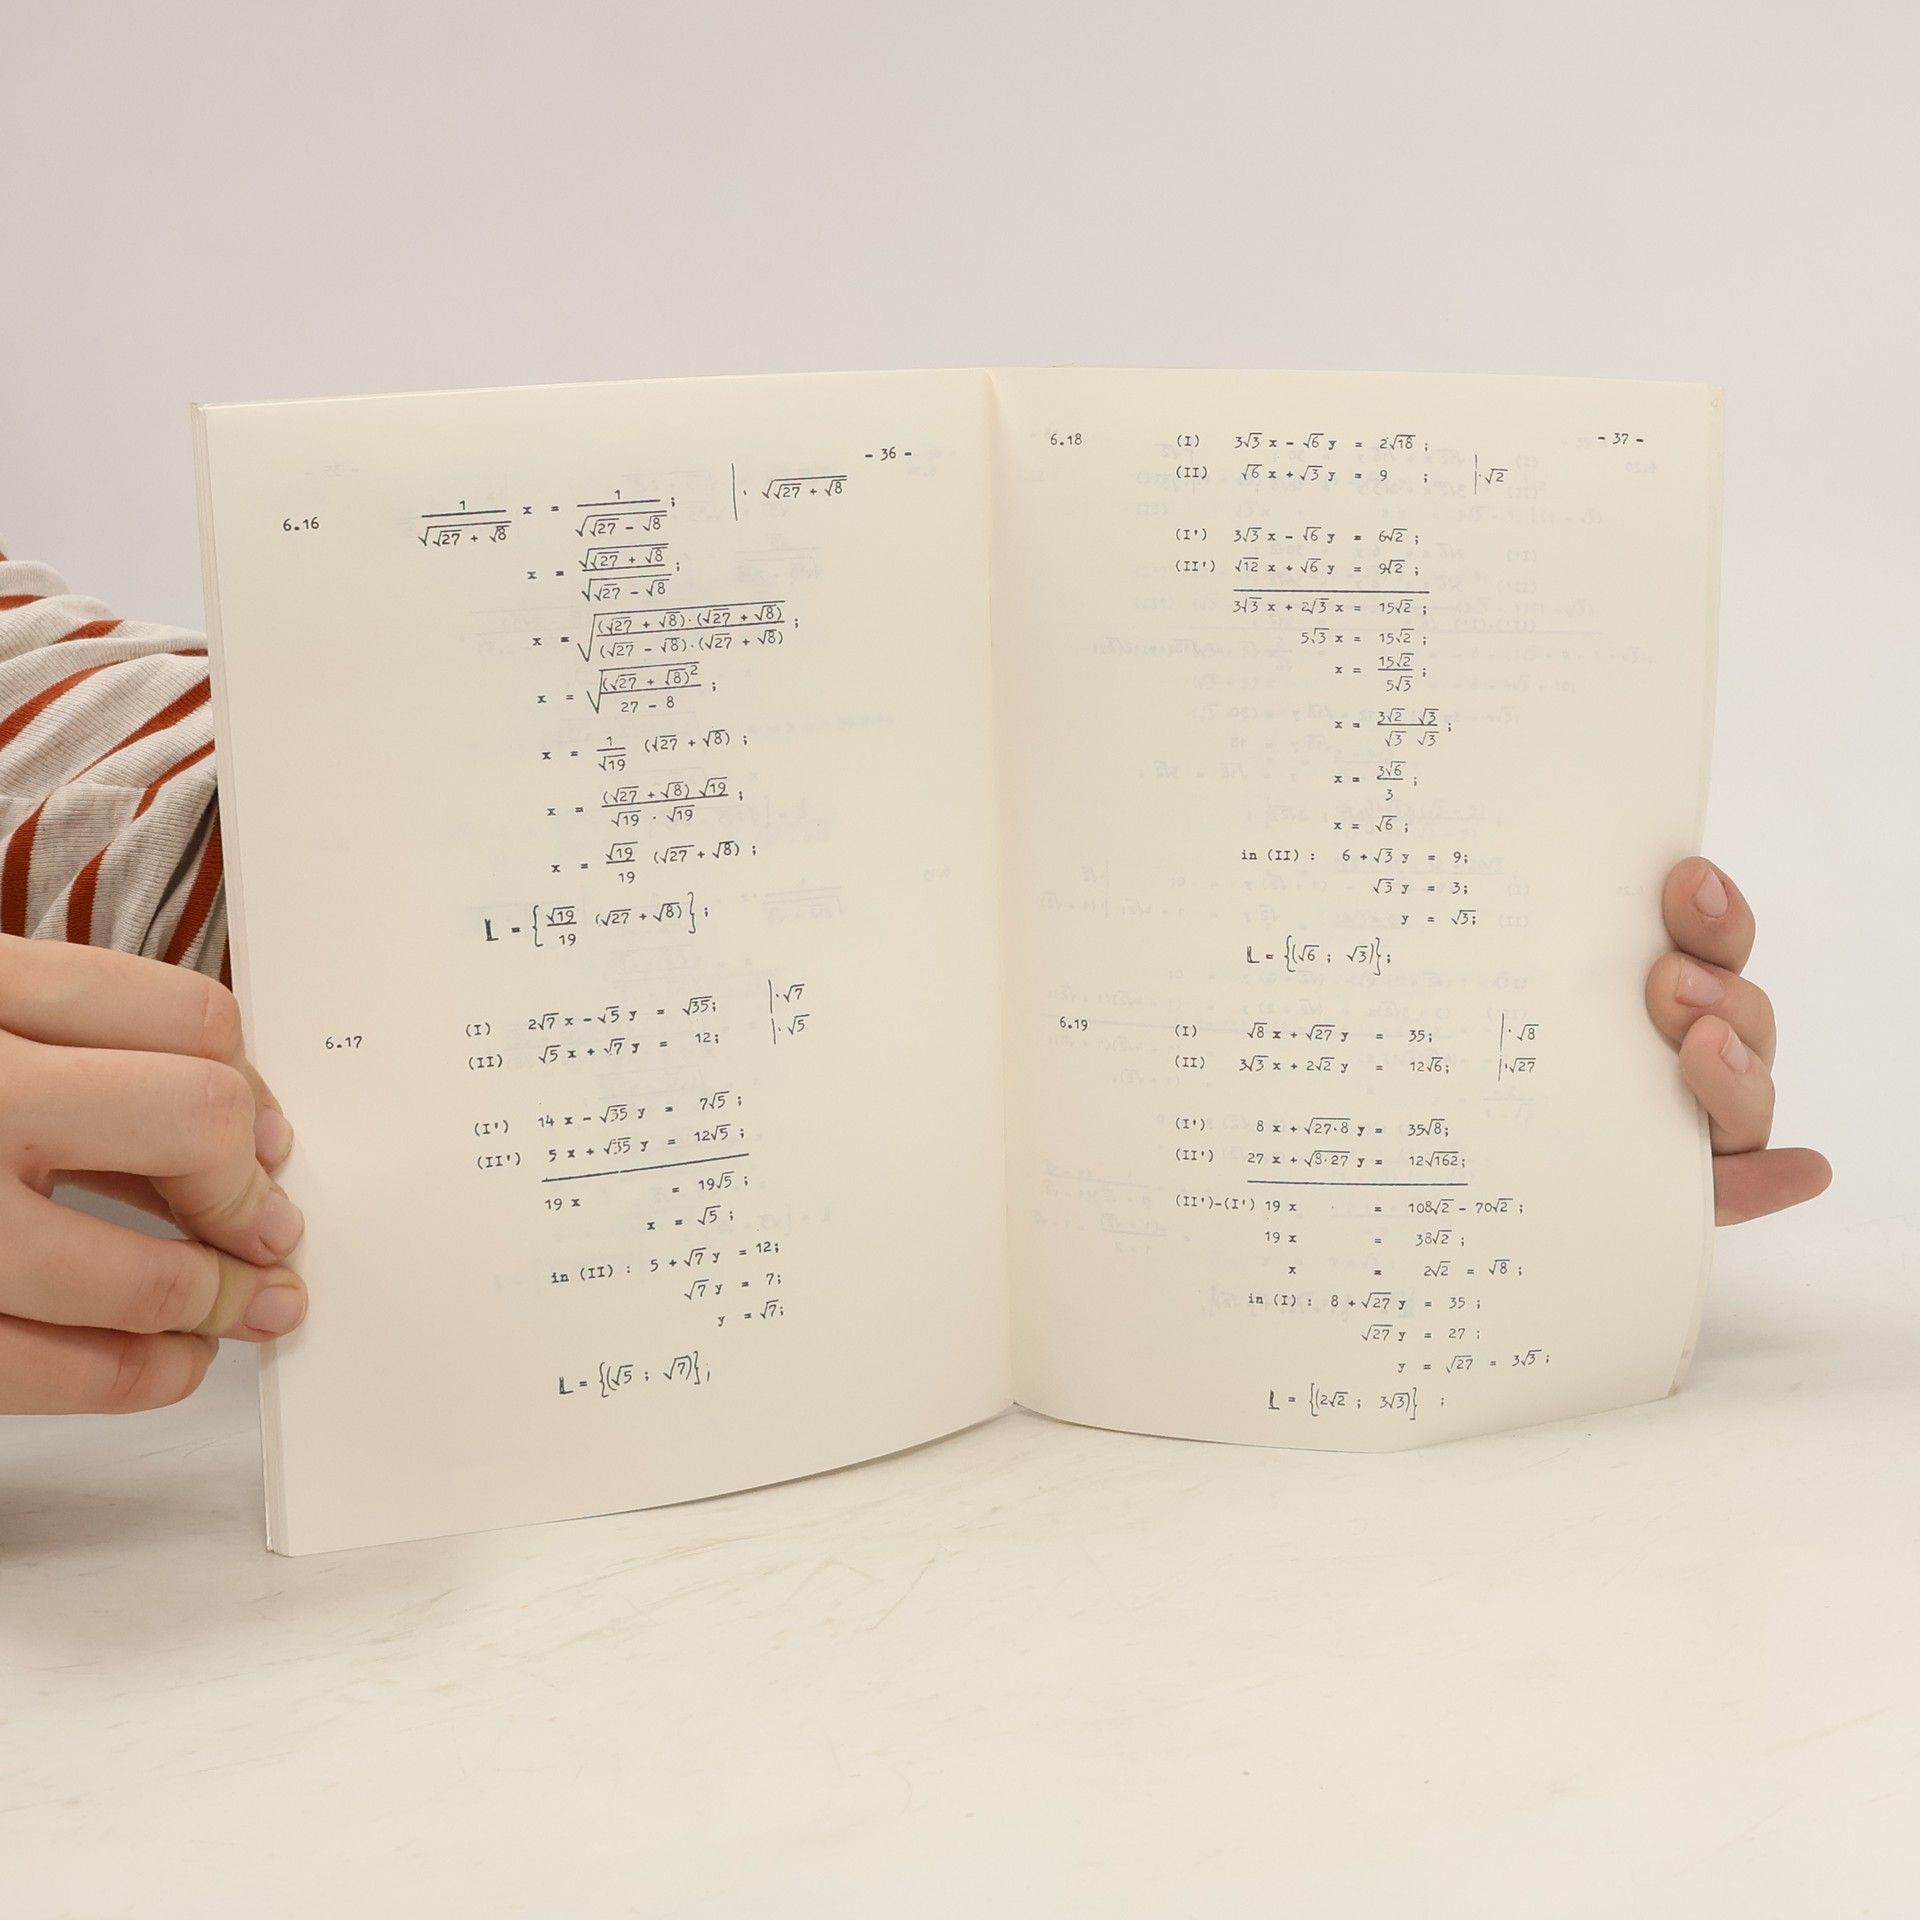 - 36 -
6.16 1/√(√27 + √8) x = 1/√(√27 - √8) ; | · √(√27 + √8)
x = √(√27 + √8)/√(√27 - √8) ;
x = √((√27 + √8)·(√27 + √8)/(√27 - √8)·(√27 + √8)) ;
x = √((√27 + √8)²/27 - 8) ;
x = 1/√19 (√27 + √8) ;
x = (√27 + √8) √19/√19 · √19 ;
x = √19/19 (√27 + √8) ;
L = {√19/19 (√27 + √8)} ;
6.17 (I) 2√7 x - √5 y = √35; | ·√7
(II) √5 x + √7 y = 12; | ·√5
(I') 14 x - √35 y = 7√5 ;
(II') 5 x + √35 y = 12√5 ;
19 x = 19√5 ;
x = √5 ;
in (II) : 5 + √7 y = 12;
√7 y = 7;
y = √7;
L = {(√5 ; √7)};
- 37 -
6.18 (I) 3√3 x - √6 y = 2√18 ;
(II) √6 x + √3 y = 9 ; | ·√2
(I') 3√3 x - √6 y = 6√2 ;
(II') √12 x + √6 y = 9√2 ;
3√3 x + 2√3 x = 15√2 ;
5√3 x = 15√2 ;
x = 15√2/5√3 ;
x = 3√2 √3/√3 √3 ;
x = 3√6/3 ;
x = √6 ;
in (II) : 6 + √3 y = 9;
√3 y = 3;
y = √3;
L = {(√6 ; √3)};
6.19 (I) √8 x + √27 y = 35; | ·√8
(II) 3√3 x + 2√2 y = 12√6; | ·√27
(I') 8 x + √27·8 y = 35√8;
(II') 27 x + √8·27 y = 12√162;
(II')-(I') 19 x = 108√2 - 70√2 ;
19 x = 38√2 ;
x = 2√2 = √8 ;
in (I) : 8 + √27 y = 35 ;
√27 y = 27 ;
y = √27 = 3√3 ;
L = {(2√2 ; 3√3)} ;